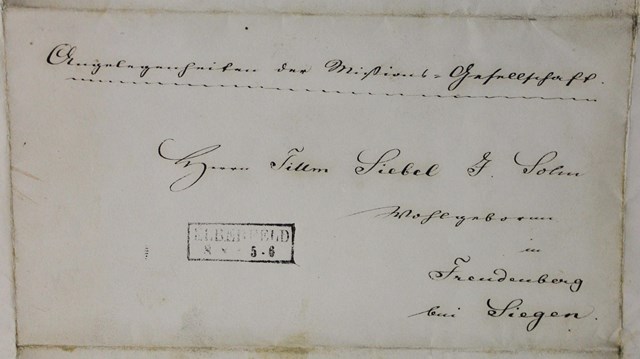 Angelegenheiten der Missions-Gesellschaft.
Herrn Tillm Siebel J. Sohn
Wohlgeboren
in
Freudenberg
bei Siegen.
ELBERFELD
8 8 5-6